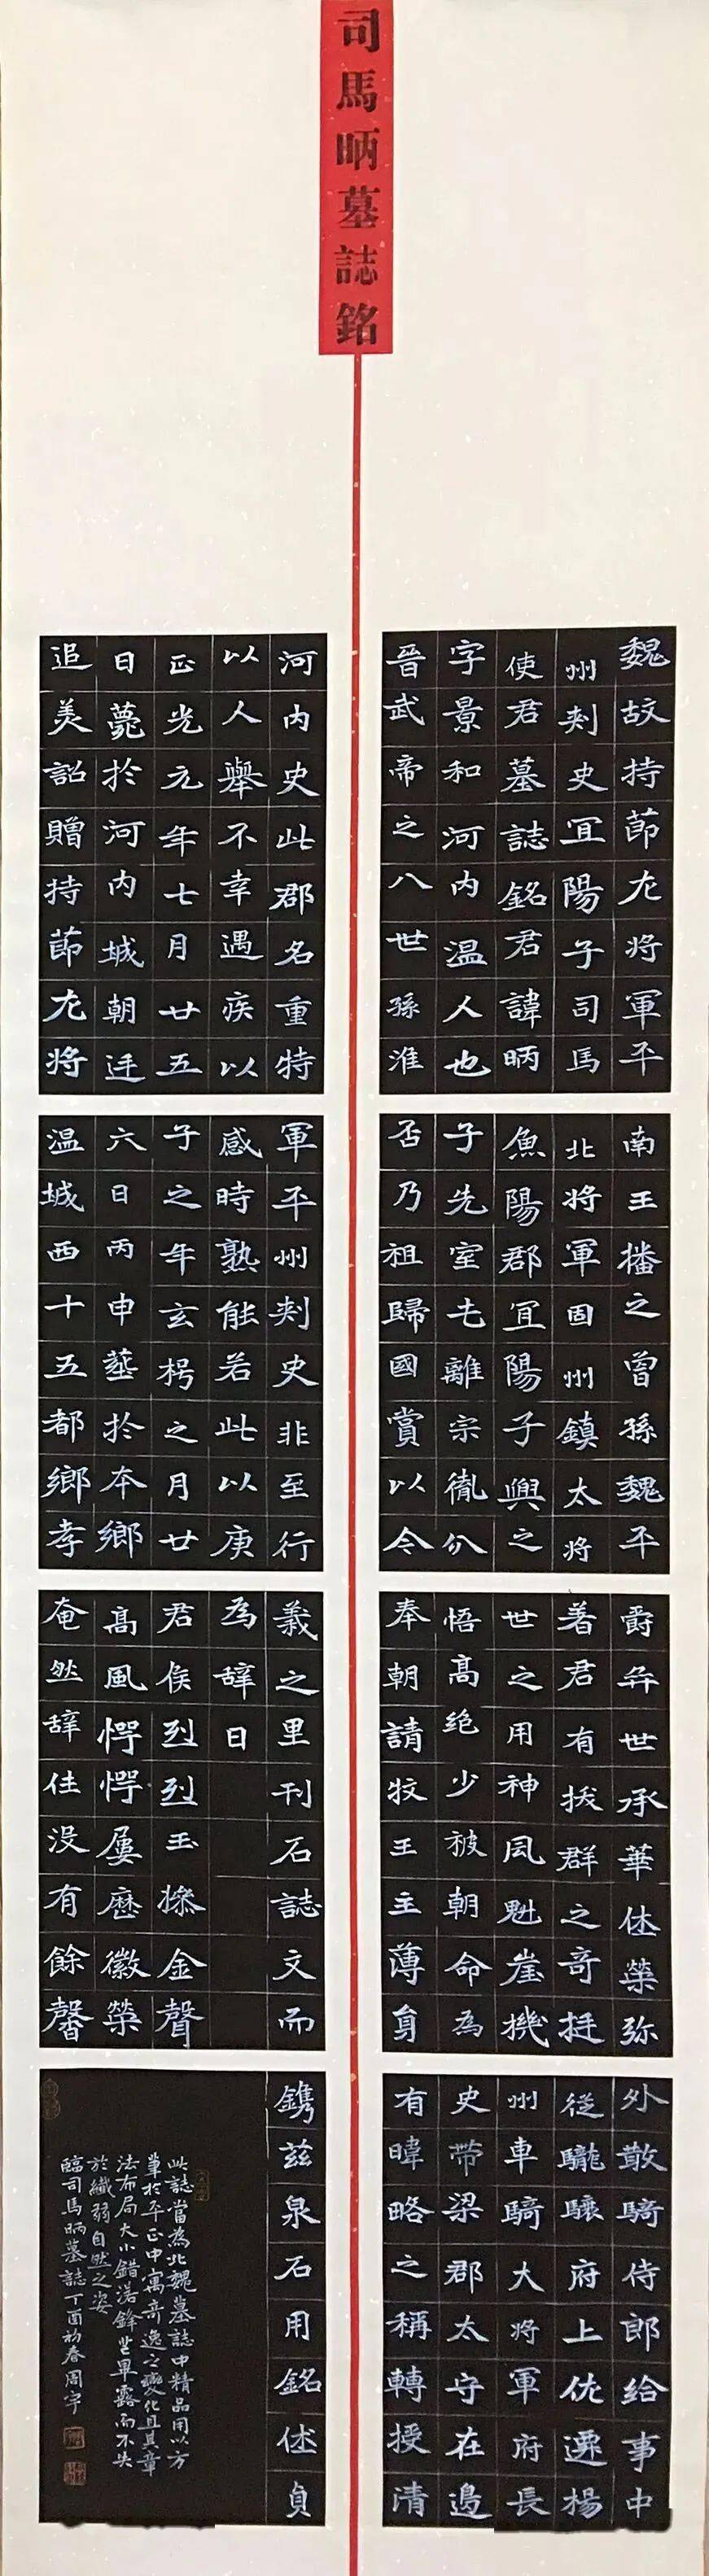 司馬昞墓誌銘
魏故持節左将軍平
州刺史冝陽子司馬
使君墓誌銘君諱昞
字景和河内温人也
晉武帝之八世孫淮
南王播之曽孫魏平
北将軍固州鎮太将
魚陽郡冝陽子興之
子先室乇離宗胤分
否乃祖歸國賞以今
爵弈世承華休榮弥
著君有拔群之奇挺
世之用神風魁崖機
悟高絶少被朝命為
奉朝請牧王主薄身
外散騎侍郎給事中
從驤府上佐遷楊
州車騎大将軍府長
史帶梁郡太守在邊
有暐略之稱轉授清
河内史此郡名重特
以人舉不幸遇疾以
正光元年七月廿五
日薨於河内城朝廷
追美詔贈持節左将
軍平州刺史非至行
感時熟能若此以庚
子之年玄枵之月廿
六日丙申塟於本鄉
温城西十五都鄉孝
義之里刊石誌文而
為辞曰
君侯烈烈玉操金聲
高風愕愕屢歷徽榮
奄然辞往没有餘馨
鐫茲泉石用銘休貞
此誌當為北魏墓誌中精品用以方
筆於平正中寓奇逸之變化且其章
法布局大小錯落鋒芒畢露而不失
於纖弱自然之姿
臨司馬昞墓誌丁酉初春周宇